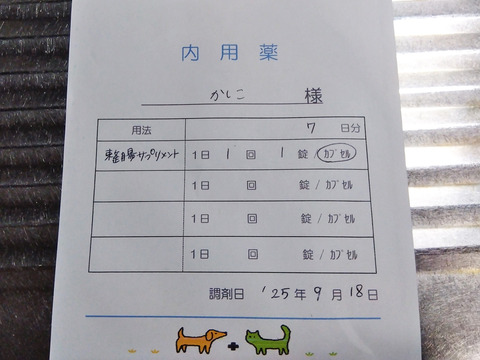 内用薬
かしこ 様
用法 7 日分
整腸サプリメント 1日 1 回 1 錠/カプセル
1日 回 錠/カプセル
1日 回 錠/カプセル
1日 回 錠/カプセル
調剤日 '25年9月18日